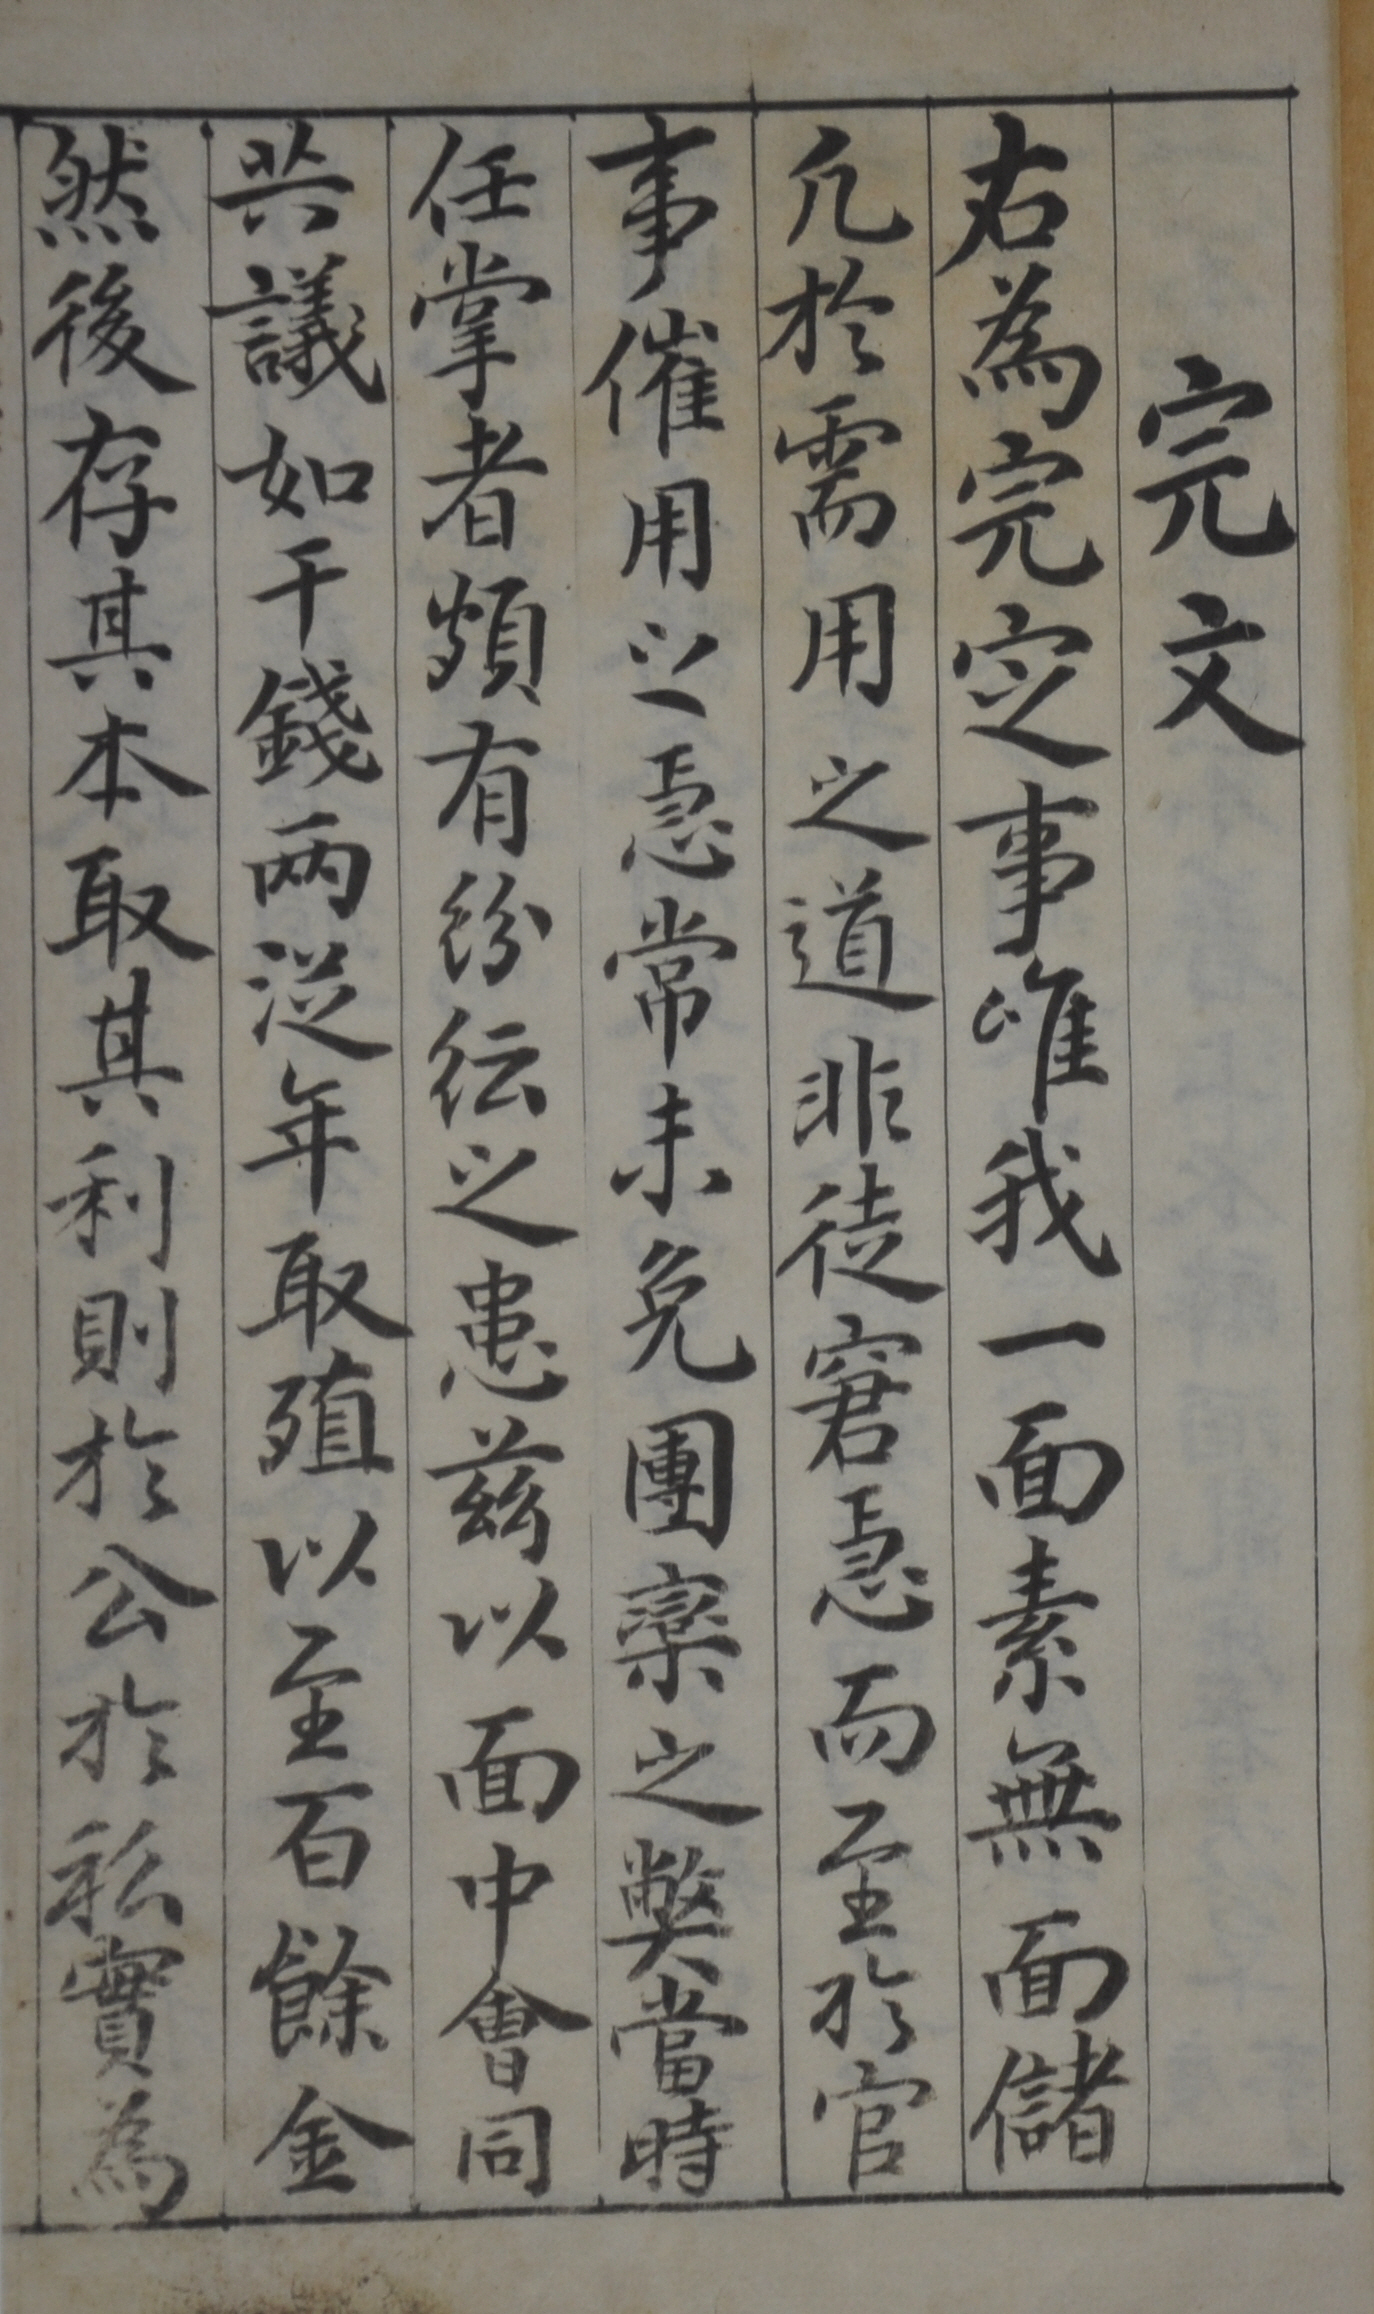 完文
右為完定事唯我一面素無面儲
凡於需用之道非徒窘急而至於官
事催用之急常未免團欒之弊當時
任掌者頗有紛紜之患玆以面中會同
共議如干錢兩從年取殖以至百餘金
然後存其本取其利則於公於私實為